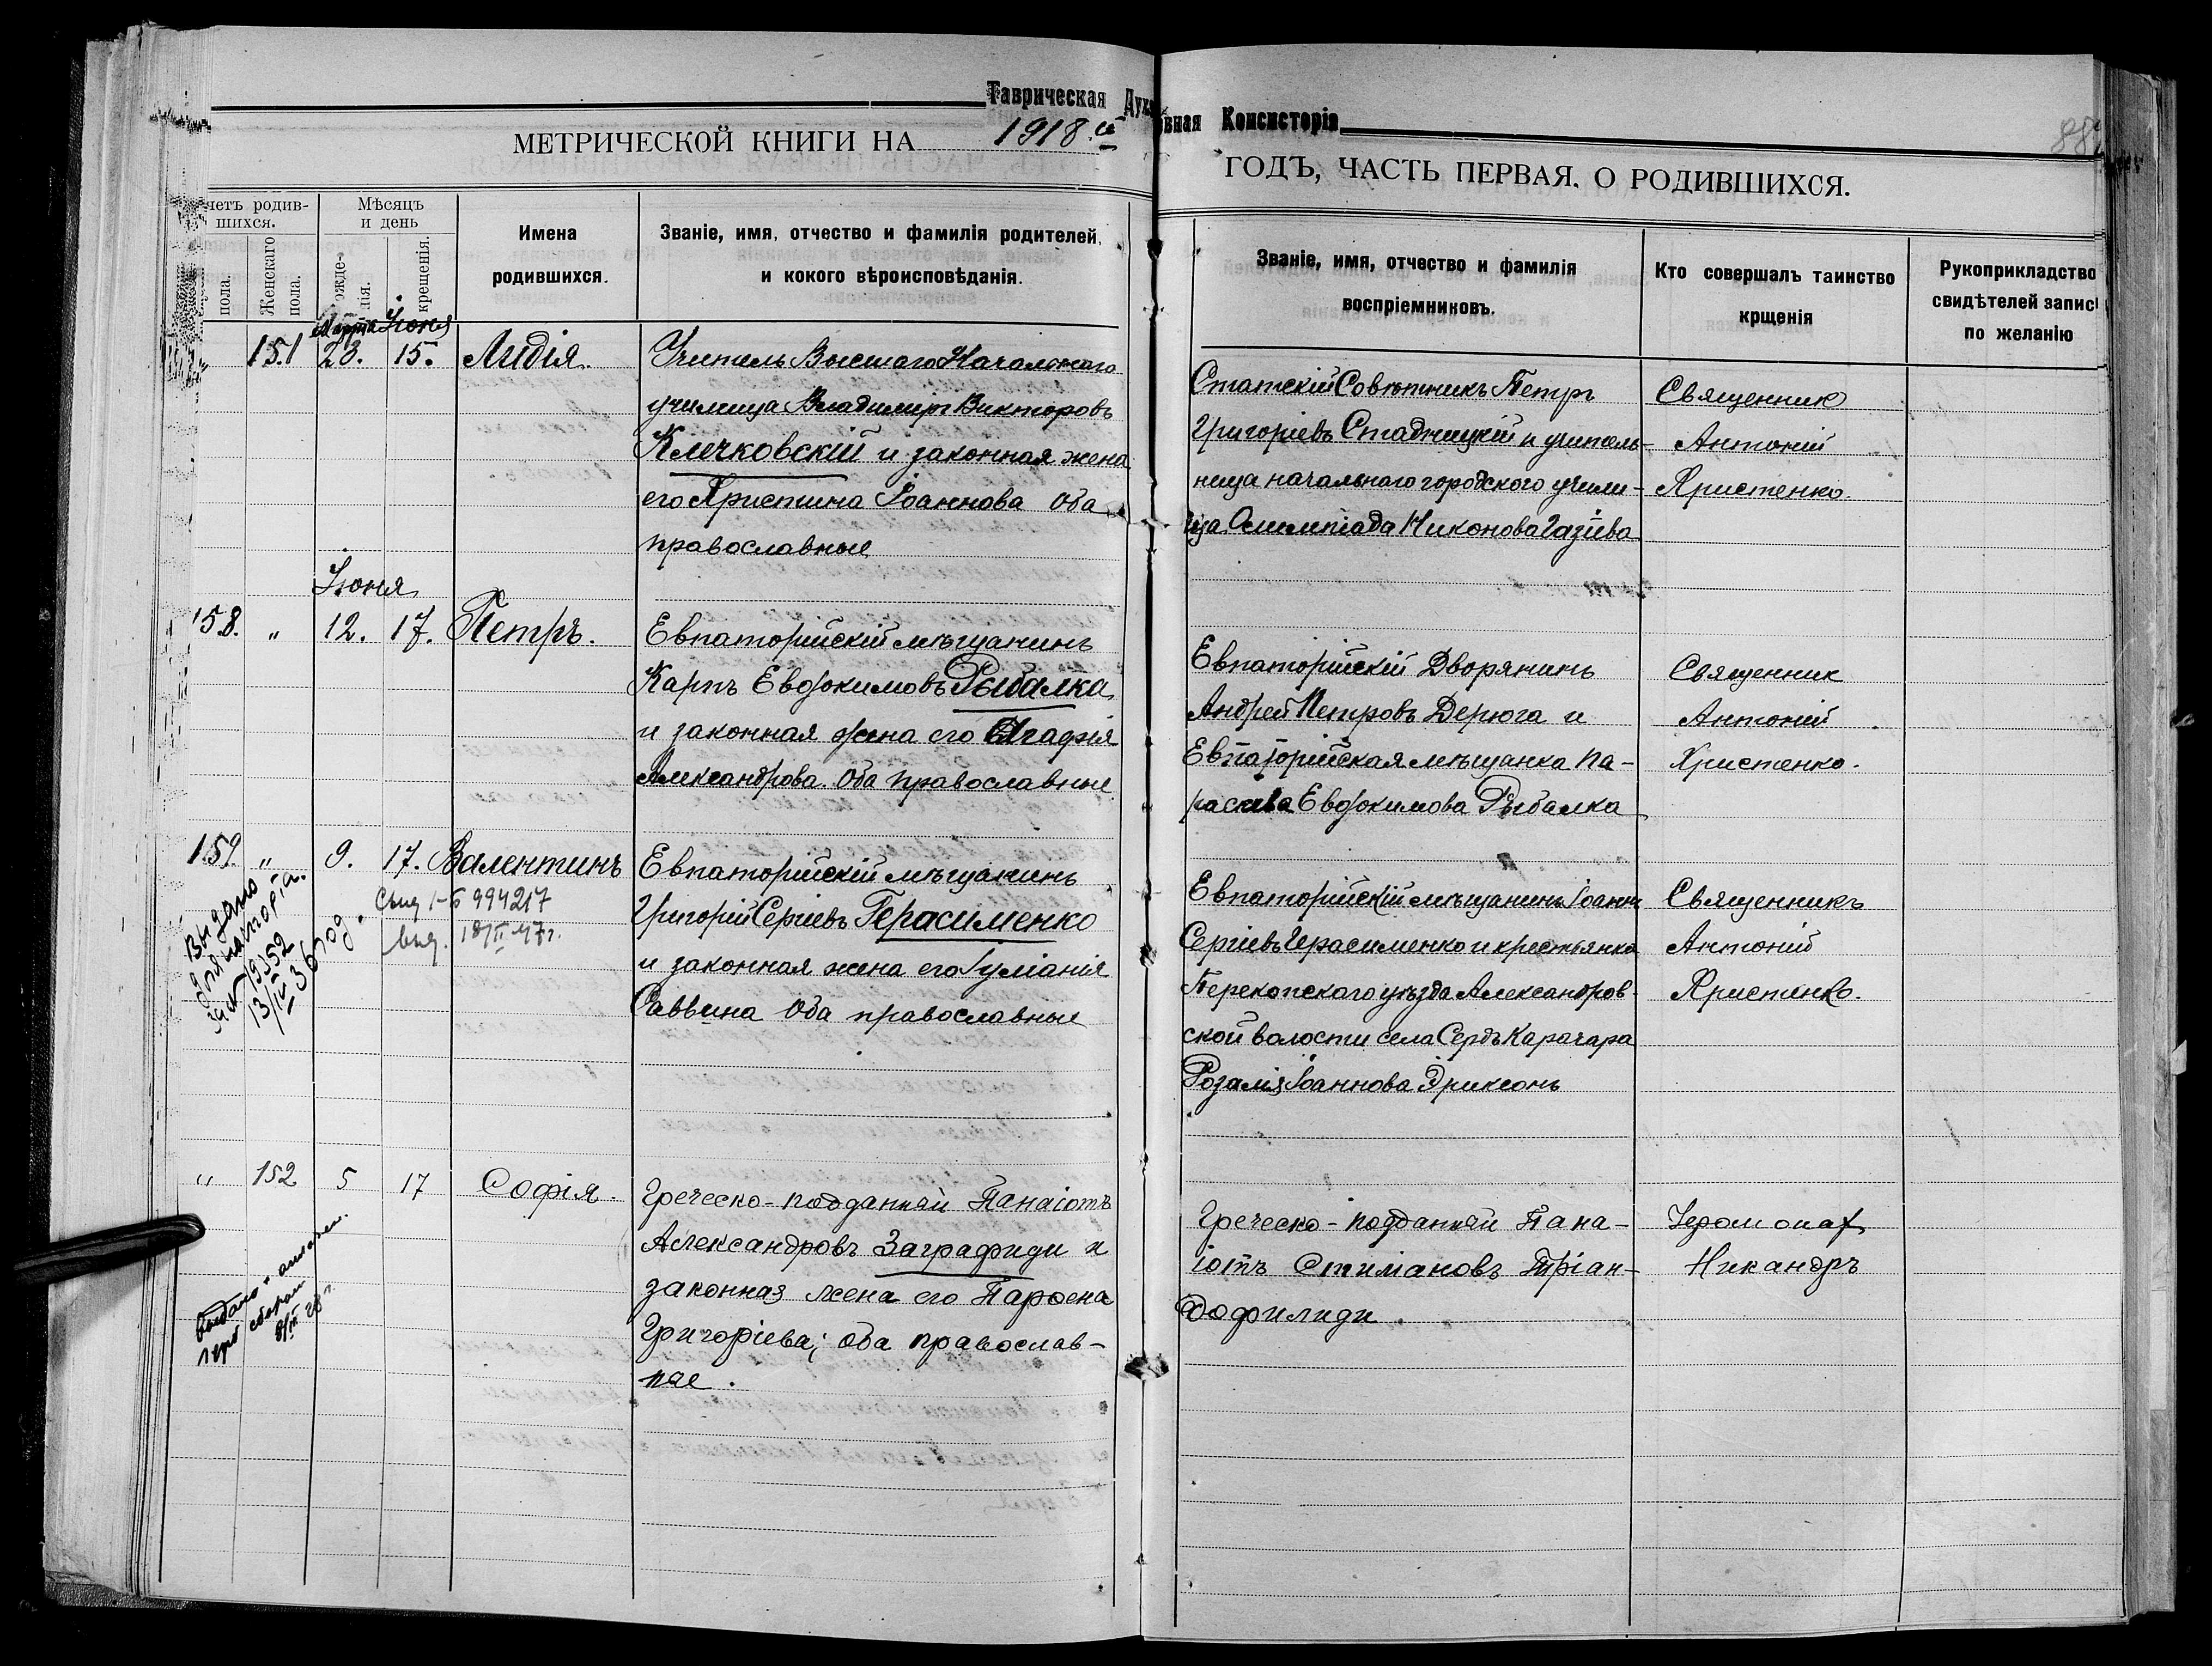 Таврическая Духовная Консисторія
МЕТРИЧЕСКОЙ КНИГИ НА 1918й
ГОДЪ, ЧАСТЬ ПЕРВАЯ. О РОДИВШИХСЯ.
четъ родив-
шихся.
пола.
Женскаго
пола.
Мѣсяцъ
и день
рожде-
нія.
крещенія.
Имена
родившихся.
Званіе, имя, отчество и фамилія родителей,
и кокого вѣроисповѣданія.
Званіе, имя, отчество и фамилія
воспріемниковъ.
Кто совершалъ таинство
крщенія
Рукоприкладство
свидѣтелей запис
по желанію
Марта Іюня
151 23. 15. Лидія.
Учитель Высшаго Начальнаго
училища Владимиръ Викторовъ
Клечковскій и законная жена
его Христина Іоаннова Оба
православные
Статскій Совѣтникъ Петръ
Григоріевъ Стадницкій и учитель-
ница начальнаго городского учили-
ща Олимпіада Никонова
Священник
Антоній
Христенко.
Іюня
158. " 12. 17. Петръ.
Евпаторійскій мѣщанинъ
Карпъ Евдокимовъ Рыбалка
и законная жена его Агафія
Александрова. Оба православные
Евпаторійскій Дворянинъ
Андрей Петровъ Дерюга и
Евпаторійская мѣщанка Па-
раскева Евдокимова Рыбалка
Священник
Антоній
Христенко.
159. " 9. 17. Валентинъ
Выдано
для паспорта.
19352
13/IV 36 год.
994217
выд. 18/II 47 г.
Евпаторійскій мѣщанинъ
Григорій Сергіевъ Герасименко
и законная жена его Іуліанія
Саввина Оба православные
Евпаторійскій мѣщанинъ Іоаннъ
Сергіевъ Герасименко и крестьянка
Перекопскаго уѣзда Александров-
ской волости села Сердъ Карачара
Розалія Іоаннова Эриксонъ
Священникъ
Антоній
Христенко.
" 152 5 17 Софія.
выдано
Греческо-подданный Панаіотъ
Александровъ Заграфиди и
законная жена его Пароена
Григоріева; оба православ-
ные.
Греческо-подданный Пана-
іотъ Стиліановъ Тріан-
дофилиди.
Іеромонах
Никандръ